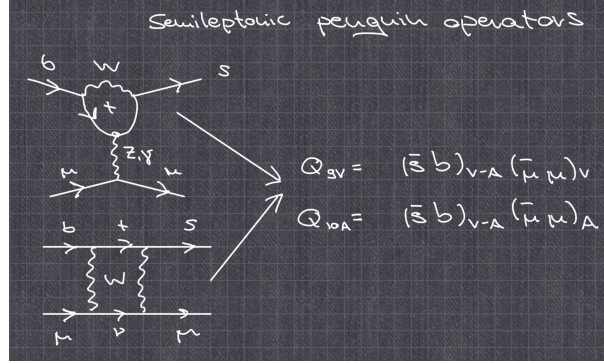 Semileptonic penguin operators
b W s
t
Z,γ
μ μ
Q9V = (s̄ b)V-A (μ̄ μ)V
Q10A = (s̄ b)V-A (μ̄ μ)A
b t s
W
μ ν μ